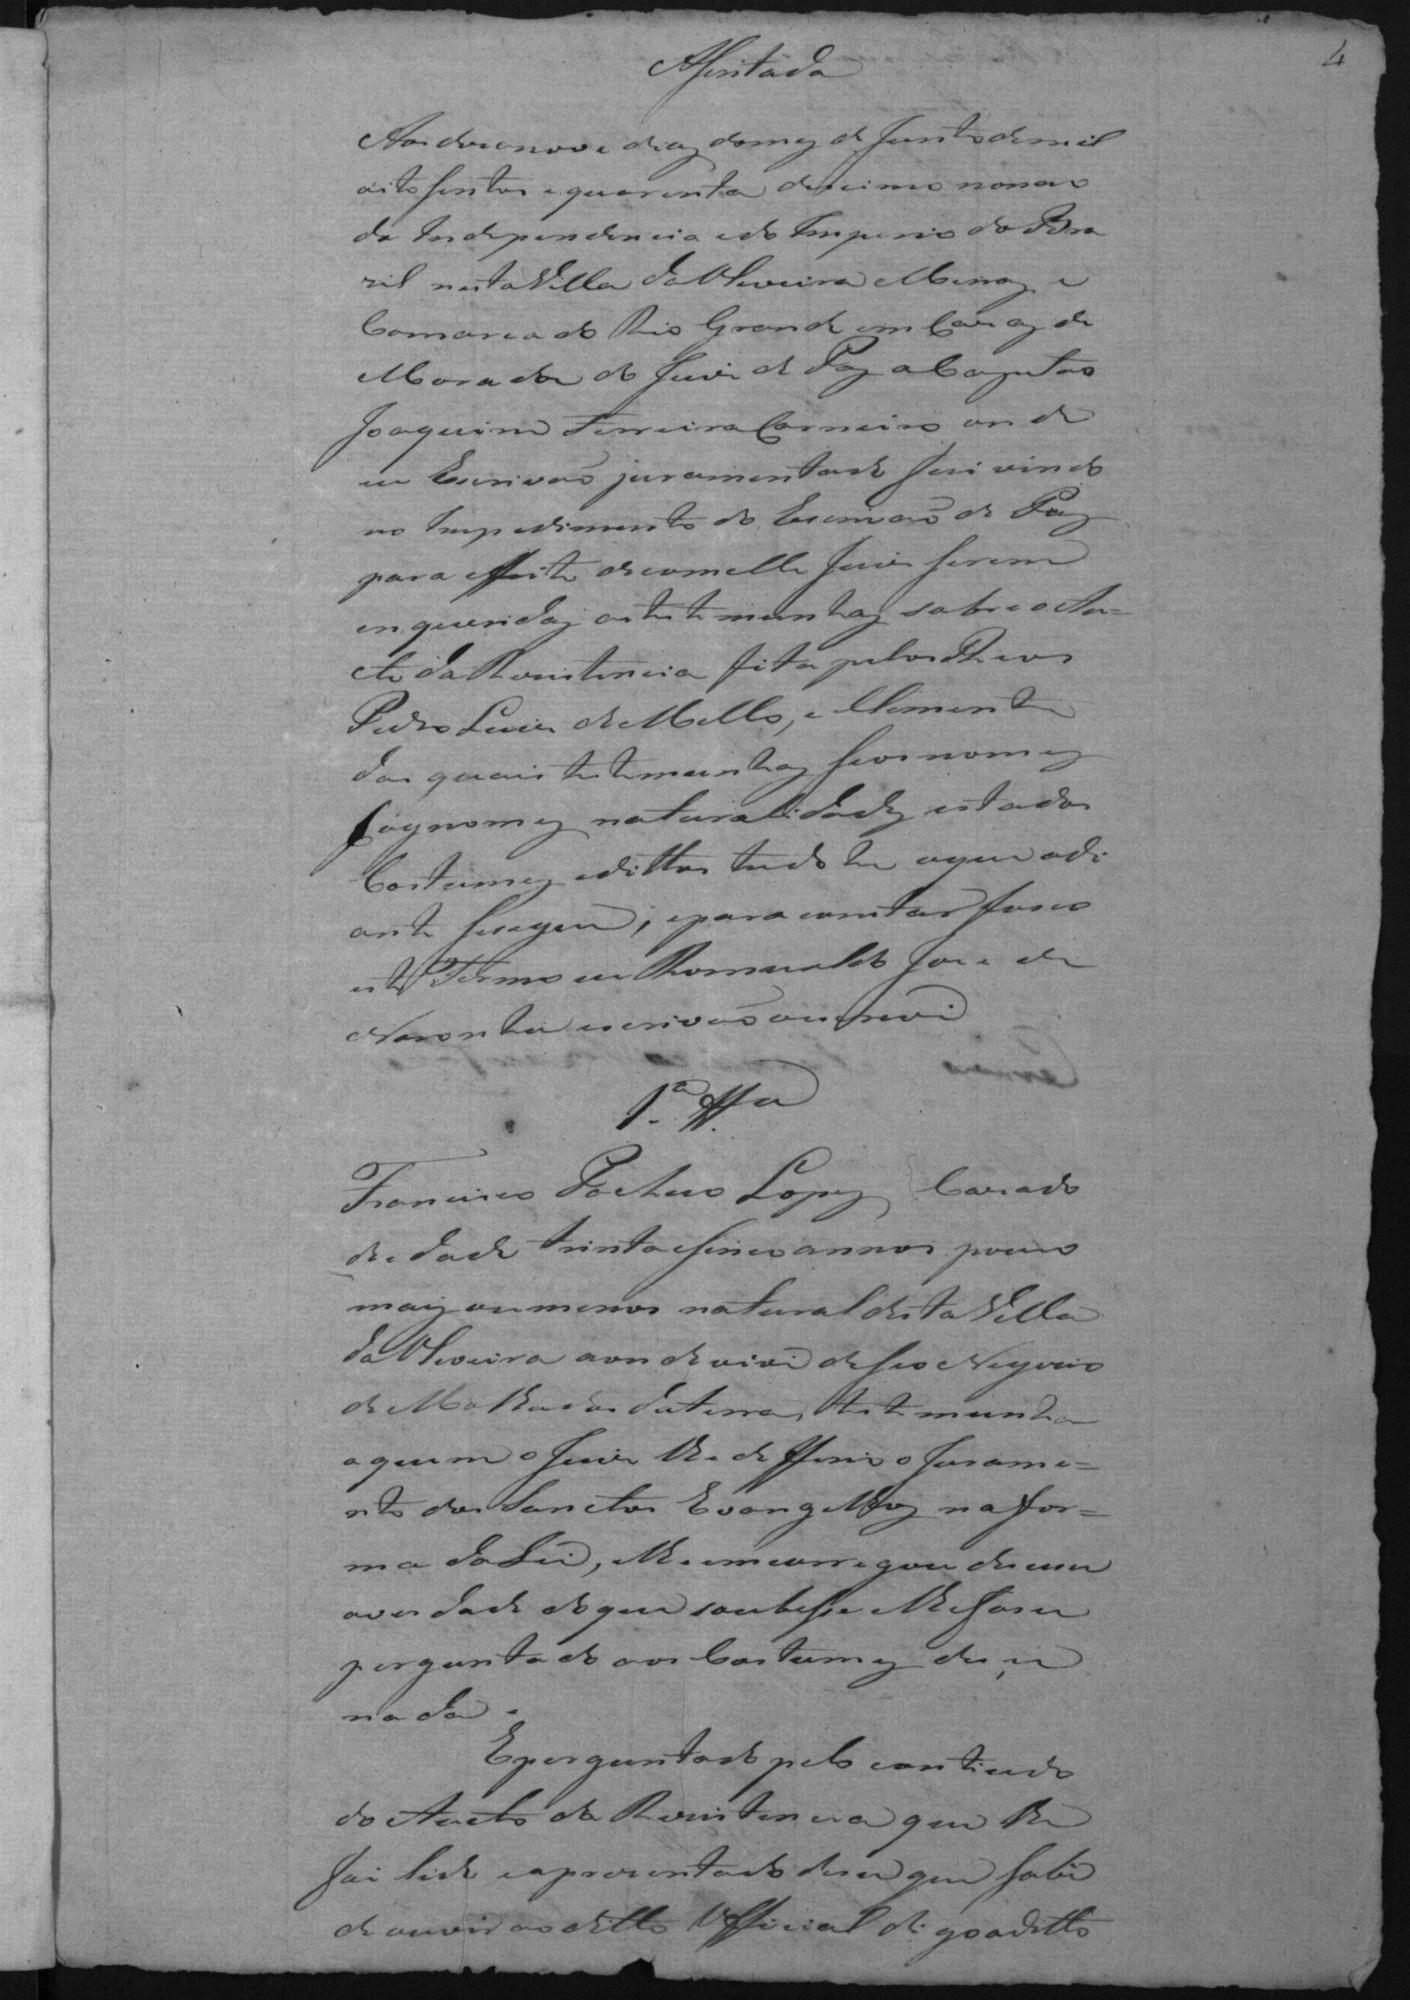 4
Assentada
Aos desanove dias do mez de Junho de mil
oito sentos e quarenta desimo nono
da Independencia e do Imperio do Bra
zil nesta Villa da Oliveira Minas e
Comarca do Rio Grande em Cazas de
Morada do Juis de Paz o Capitão
Joaquim Ferreira Carneiro onde
eu Escrivão juramentado servindo
no Impedimento do Escrivão de Paz
para effeito de com elle Juis serem
enqueridas as testemunhas sobre o Au=
cto da Resistencia feita pelos Reos
Pedro Luis de Mello, e Clemente
das quais testemunhas seos nomes
Cognomes naturalidades estados
Costumes e dittos tudo he o que adi
ante se segue, e para constar faso
este Termo eu Romualdo Jose de
Noronha escrivão o escrevi
1.ª Tta
Francisco Pacheco Lopes Cazado
de edade trinta e sinco annos pouco
mais ou menos natural desta Villa
da Oliveira aonde vive de seo Negocio
de Molhados da terra, testemunha
a quem o Juis lhe defferio o Jurame=
nto dos Sanctos Evangelhos na for=
ma da Lei, e lhe emcarregou dicese
a verdade do que soubesse e lhe fose
perguntado aos Costumes dise
nada.
E perguntado pelo contiudo
do Aucto da Resistencia que lhe
foi lido e aprezentado dise que sabe
de ouvir ao ditto Official digo a ditto